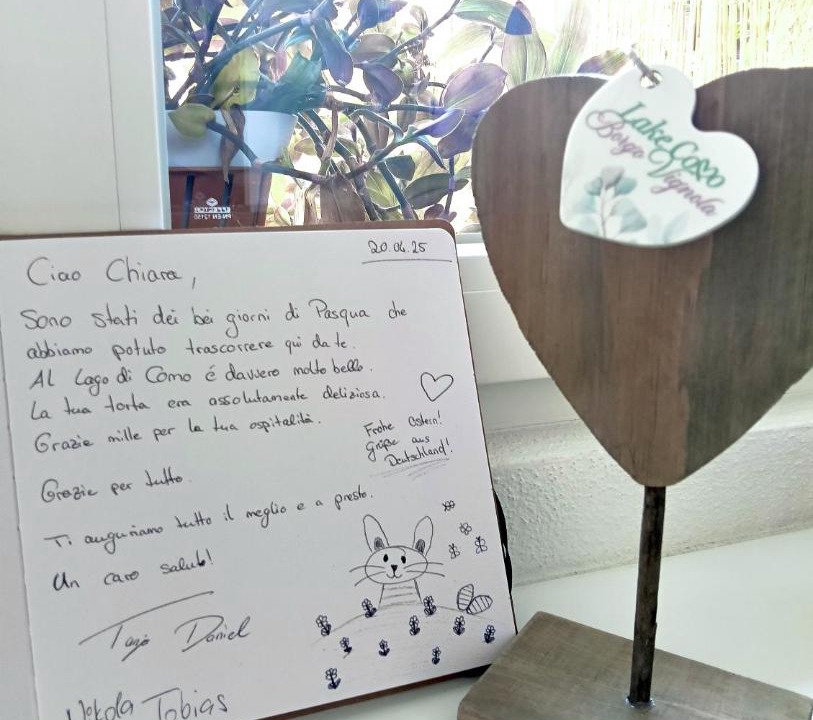 20.04.25
Ciao Chiara,
Sono stati dei bei giorni di Pasqua che
abbiamo potuto trascorrere qui da te.
Al Lago di Como é davvero molto bello.
La tua torta era assolutamente deliziosa.
Grazie mille per la tua ospitalità.
Frohe Ostern!
Grüße aus
Deutschland!
Grazie per tutto.
Ti auguriamo tutto il meglio e a presto.
Un caro saluto!
Daniel
Tobias
Lake Como
Borgo Vignola